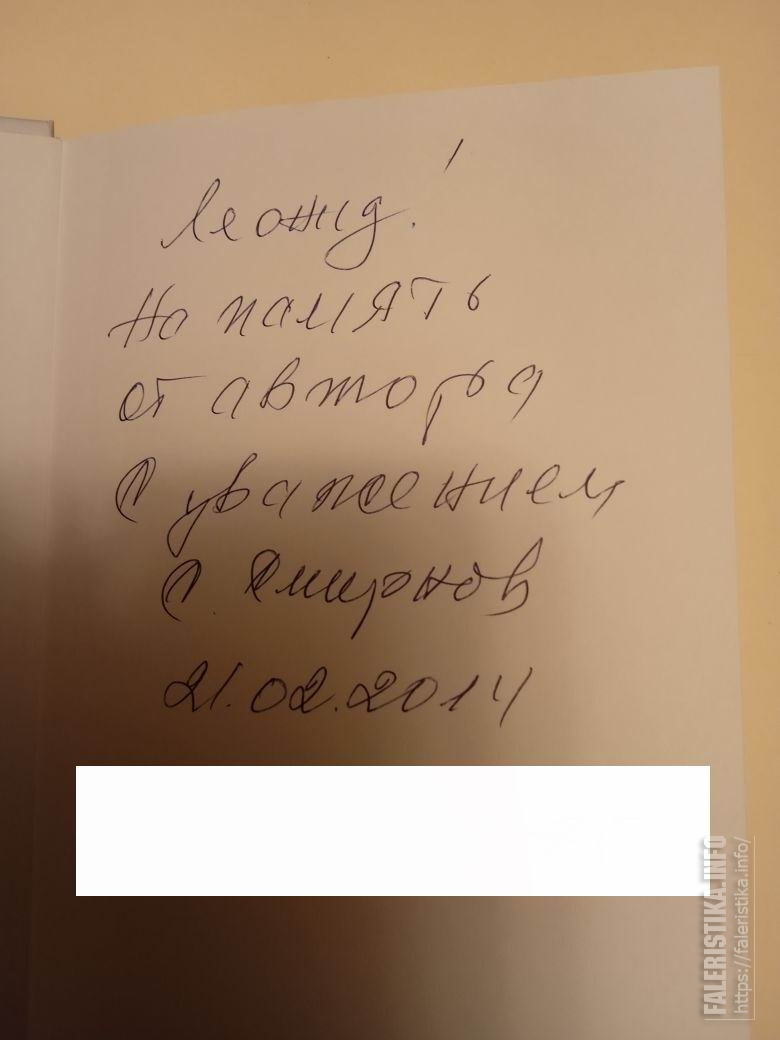 Леонид!
На память
от автора
С уважением
С. Смирнов
21.02.2014
FALERISTIKA.INFO
https://faleristika.info/